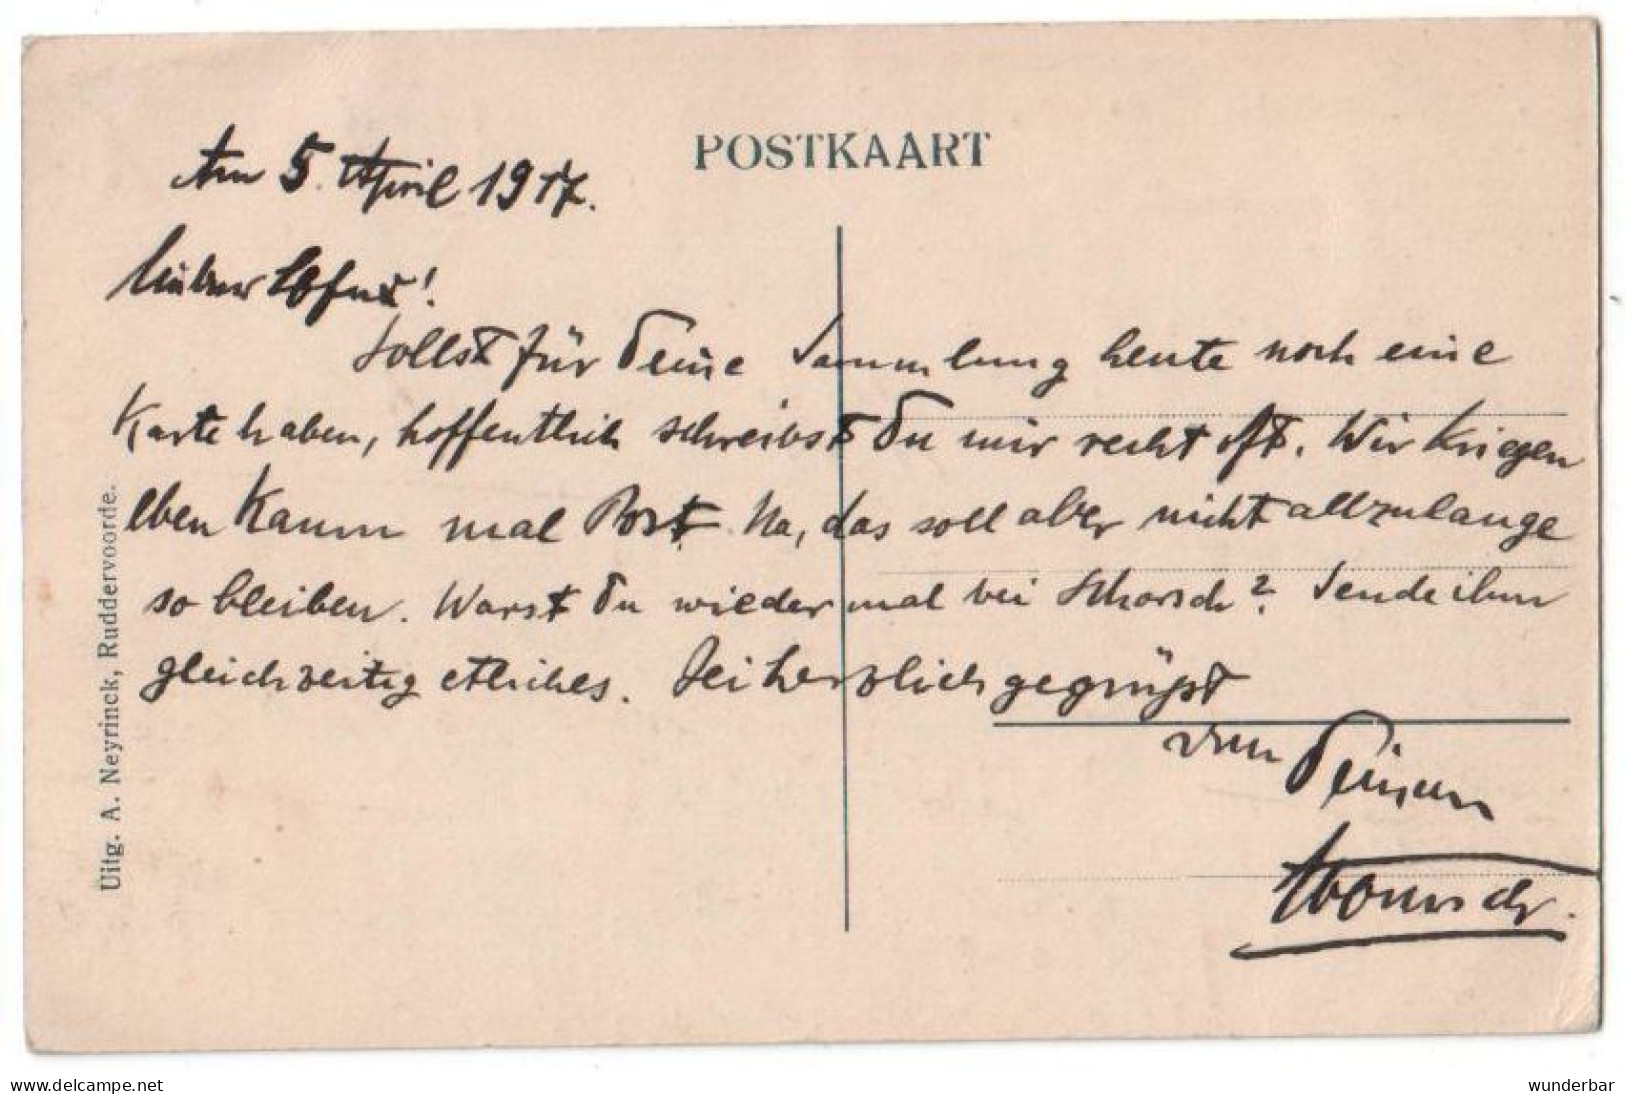 POSTKAART
Am 5. April 1917.
Lieber
Sollst für Deine Sammlung heute noch eine
Karte haben, hoffentlich schreibst Du mir recht oft. Wir kriegen
eben kaum mal Post. Na, das soll aber nicht allzulange
so bleiben. Warst Du wieder mal bei Schorsch? Sende ihm
gleichzeitig etliches. Sei herzlich gegrüßt
von Deinem
Uitg. A. Neyrinck, Ruddervoorde.
delcampe.net
wunderbar